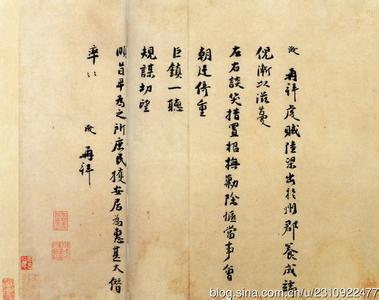 汝再拜虔賊陸梁出於州郡養成端
倪漸以滋蔓
左右談笑措置招撫勦除懂當事會
朝廷倚重
巨鎮一聽
規謀切望
明旨早為之所庶民獲安居為惠甚大僭
率〻
汝再拜
blog.sina.com.cn/u/2310922477